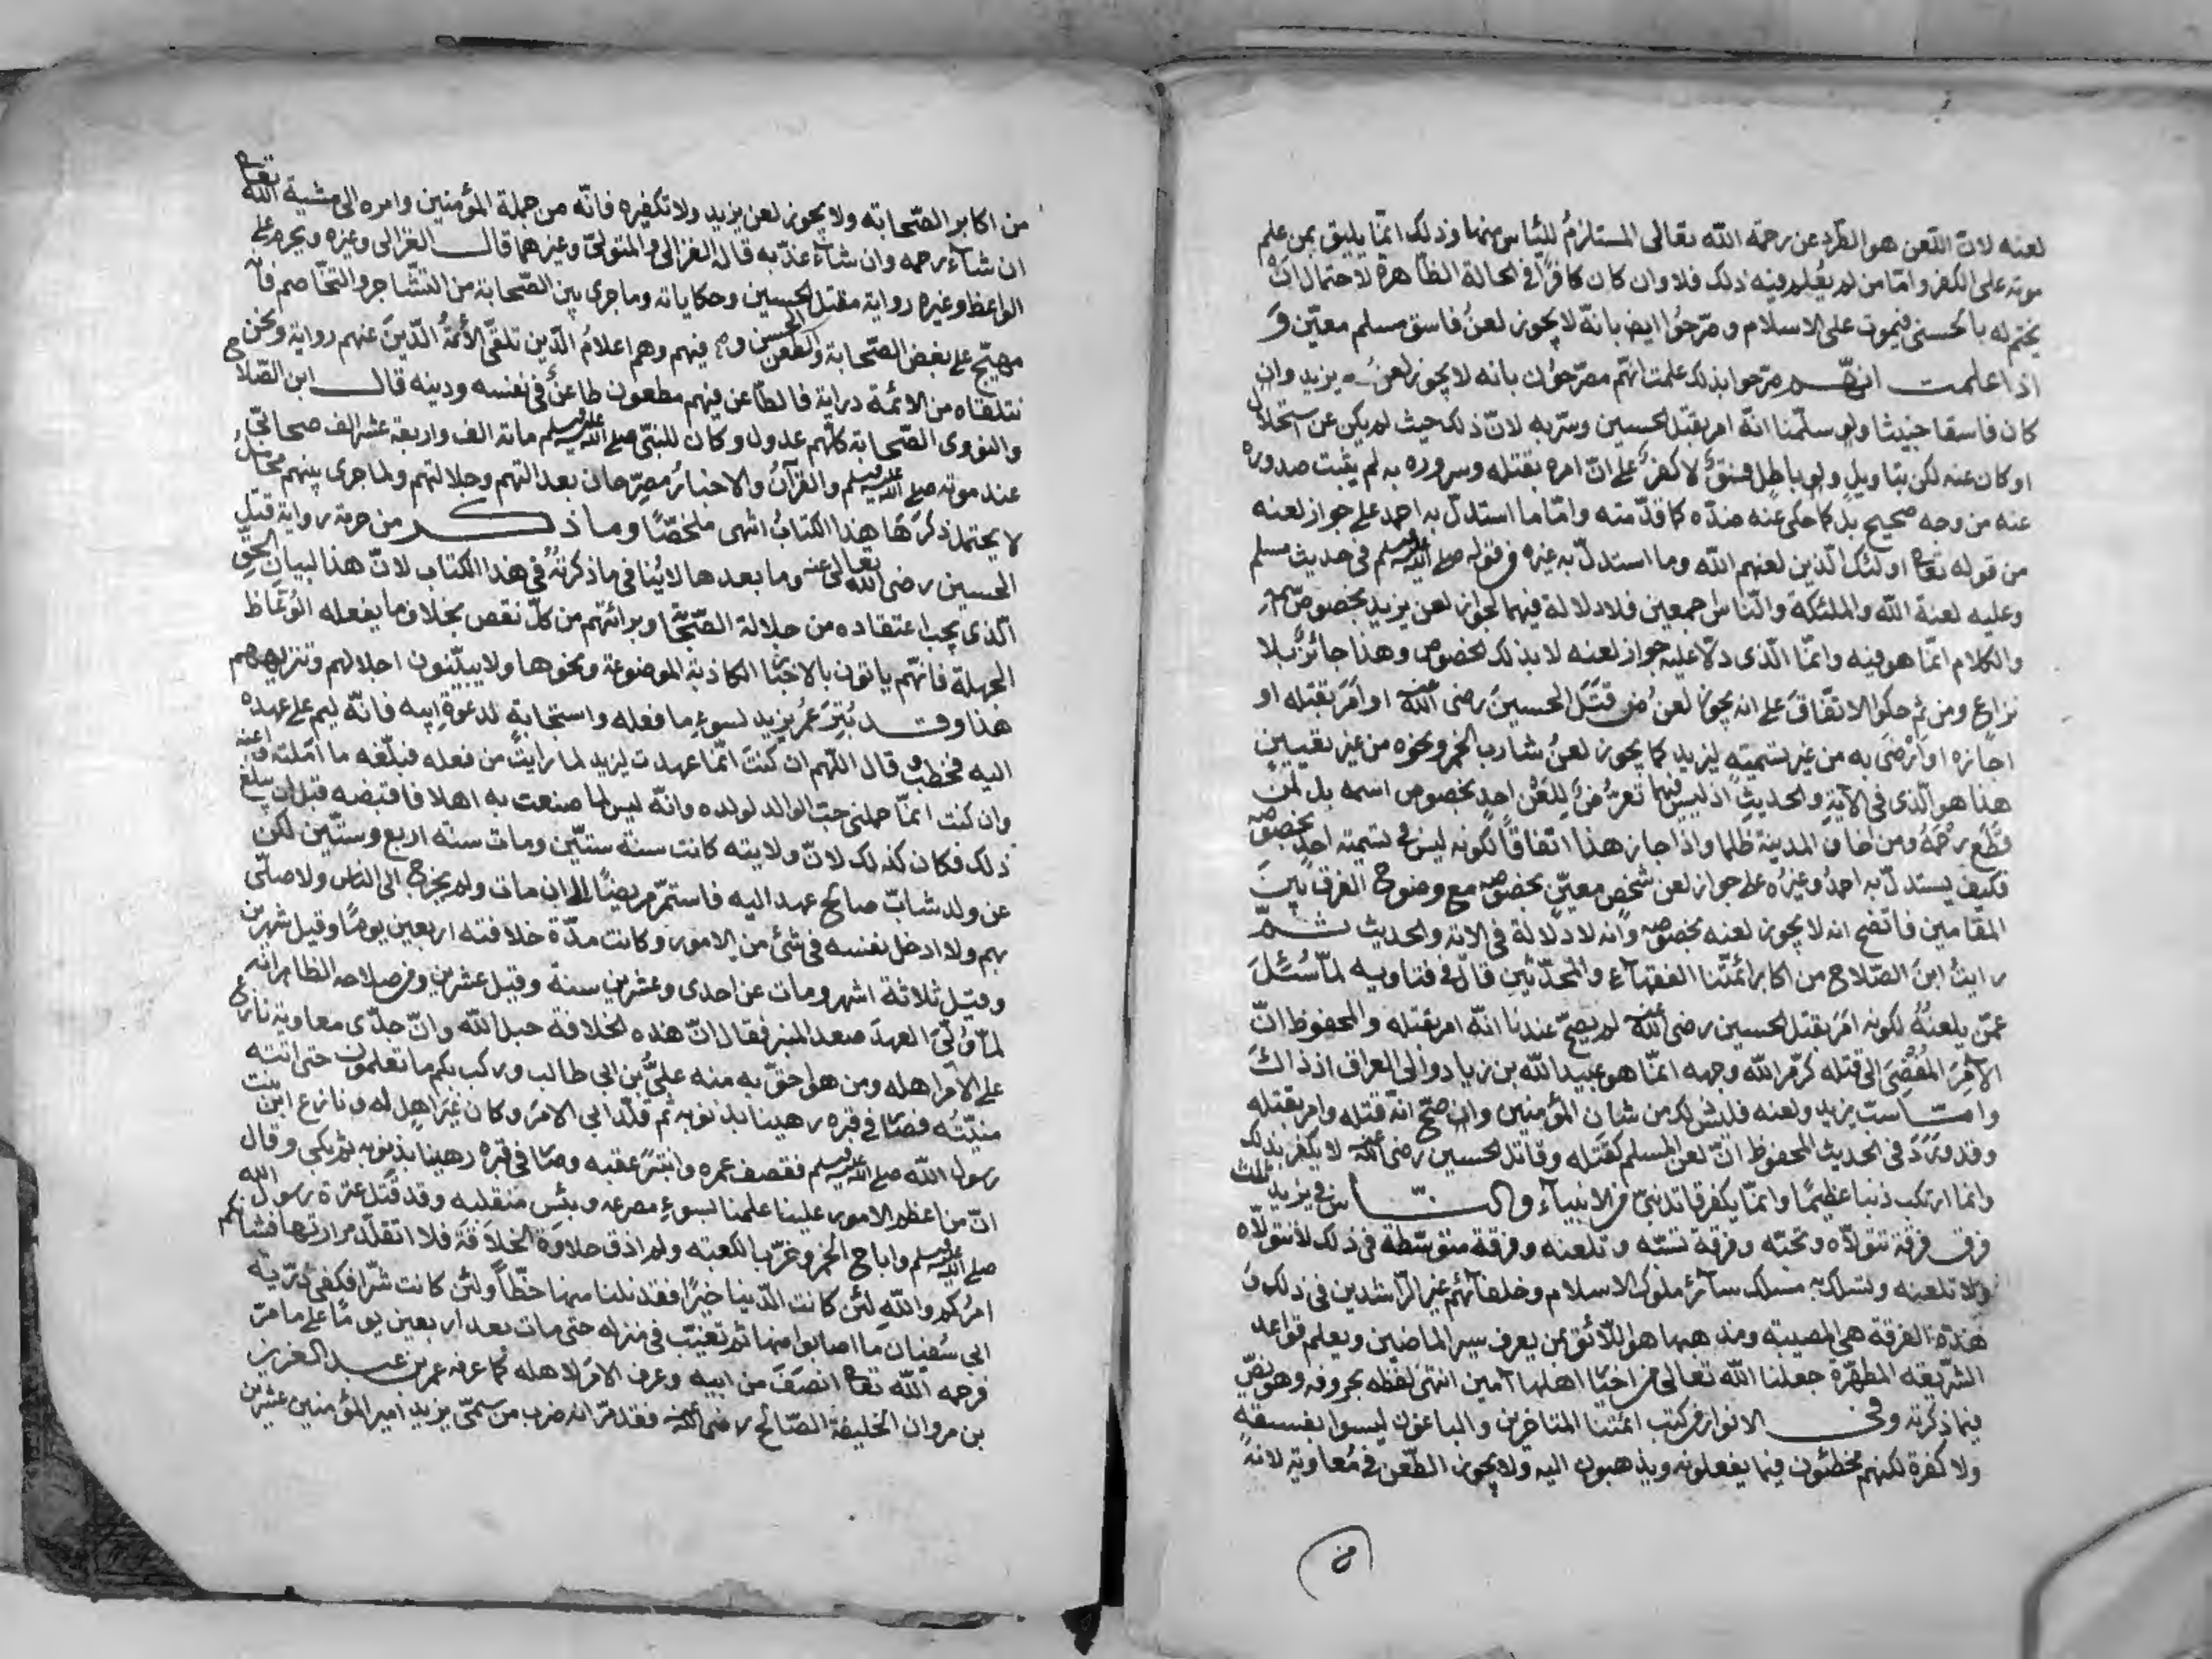 لعنه لان اللعن هو الطرد عن رحمة الله تعالى المستلزم للياس منها وذلك انما يليق بمن علم
موته على الكفر واما من لم يعلم فيه ذلك فلا وان كان كافرا في الحالة الظاهرة لاحتمال ان
يختم له بالحسنى فيموت على الاسلام وصرحوا ايضا بانه لا يجوز لعن فاسق مسلم معين و
اذا علمت انهم صرحوا بذلك علمت انهم مصرحون بانه لا يجوز لعن يزيد وان
كان فاسقا خبيثا ولو سلمنا انه امر بقتل الحسين وسر به لان ذلك حيث لم يكن عن استحلال
او كان عنه لكن بتاويل ولو باطل فسق لا كفر على ان امره بقتله وسروره به لم يثبت صدوره
عنه من وجه صحيح بل كما حكى عنه ضده كما قدمته واما ما استدل به احمد على جواز لعنه
من قوله تعا اولئك الذين لعنهم الله وما استدل به غيره من قوله صلى الله عليه وسلم في حديث مسلم
وعليه لعنة الله والملئكة والناس اجمعين فلا دلالة فيهما لجواز لعن يزيد بخصوص اسمه
والكلام انما هو فيه وانما الذي دلا عليه جواز لعنه لا بذلك الخصوص وهذا جائز بلا
نزاع ومن ثم حكوا الاتفاق على انه يجوز لعن من قتل الحسين رضي الله عنه او امر بقتله او
اجازه او رضى به من غير تسمية ليزيد كما يجوز لعن شارب الخمر ونحوه من غير تعيين
هذا هو الذي في الآية والحديث اذ ليس فيهما تعرض للعن احد بخصوص اسمه بل لمن
قطع رحمه ومن اخاف المدينة ظلما واذا جاز هذا اتفاقا لكونه ليس فيه تسمية احد بخصوصه
فكيف يستدل به احمد وغيره على جواز لعن شخص معين بخصوصه مع وضوح الفرق بين
المقامين فاتضح انه لا يجوز لعنه بخصوصه وانه لا دلالة في الاية والحديث ثم
رايت ابن الصلاح من اكابر ائمتنا الفقهاء والمحدثين قال في فتاويه لما سئل
عمن يلعنه لكونه امر بقتل الحسين رضي الله عنه لم يصح عندنا انه امر بقتله والمحفوظ ان
الآمر المفضي الى قتله كرم الله وجهه انما هو عبيد الله بن زياد والى العراق اذ ذاك
واما سب يزيد ولعنه فليس ذلك من شان المؤمنين وان صح انه قتله وامر بقتله
وقد ورد في الحديث المحفوظ ان لعن المسلم كقتله وقاتل الحسين رضي الله عنه لا يكفر بذلك
وانما ارتكب ذنبا عظيما وانما يكفر قاتل نبي من الانبياء والناس في يزيد ثلث
فرق فرقة تتولاه وتحبه وفرقة تسبه وتلعنه وفرقة متوسطة في ذلك لا تتولاه
ولا تلعنه وتسلك به مسلك سائر ملوك الاسلام وخلفائهم غير الراشدين في ذلك و
هذه الفرقة هي المصيبة ومذهبها هو اللائق بمن يعرف سير الماضين ويعلم قواعد
الشريعة المطهرة جعلنا الله تعالى من اخيار اهلها آمين انتهى لفظه بحروفه وهو نص
فيما ذكرته وفي الانوار من كتب ائمتنا المتاخرين والباغون ليسوا بفسقة
ولا كفرة لكنهم مخطئون فيما يفعلونه ويذهبون اليه ولا يجوز الطعن في معاوية لانه
من
من اكابر الصحابة ولا يجوز لعن يزيد ولا تكفيره فانه من جملة المؤمنين وامره الى مشية الله تعا
ان شاء رحمه وان شاء عذبه قاله الغزالى والمتولى وغيرهما قال الغزالى وغيره ويحرم على
الواعظ وغيره رواية مقتل الحسين وحكاياته وما جرى بين الصحابة من التشاجر والتخاصم فانه
مهيج على بغض الصحابة والطعن فيهم وهم اعلام الدين تلقى الأئمة الدين عنهم رواية ونحن
نتلقاه من الائمة دراية فالطاعن فيهم مطعون طاعن في نفسه ودينه قال ابن الصلاح
والنووى الصحابة كلهم عدول وكان للنبى صلى الله عليه وسلم مائة الف واربعة عشر الف صحابى
عند موته صلى الله عليه وسلم والقرآن والاخبار مصرحان بعدالتهم وجلالتهم ولما جرى بينهم محامل
لا يحتمل ذكرها هذا الكتاب انتهى ملخصا وما ذكر من حرمة رواية قتل
الحسين رضي الله تعالى عنه وما بعدها لا ينافى ما ذكرته في هذا الكتاب لان هذا لبيان الحق
الذى يجب اعتقاده من جلالة الصحابة وبرائتهم من كل نقص بخلاف ما يفعله الوعاظ
الجهلة فانهم ياتون بالاخبار الكاذبة الموضوعة ونحوها ولا يبينون اجلالهم وتنزيههم
هذا وقد بتر عمر يزيد لسوء ما فعله واستجابة لدعوة ابيه فانه ليم على عهده
اليه فخطب وقال اللهم ان كنت انما عهدت ليزيد لما رايت من فعله فبلغه ما املته فاعنه
وان كنت انما حملنى حب الوالد لولده وانه ليس لما صنعت به اهلا فاقبضه قبل ان يبلغ
ذلك فكان كذلك لان ولايته كانت سنة ستين ومات سنة اربع وستين لكن
عن ولد شاب صالح عهد اليه فاستمر مريضا الى ان مات ولم يخرج الى الناس ولا صلى
بهم ولا ادخل نفسه في شئ من الامور وكانت مدة خلافته اربعين يوما وقيل شهرين
وقيل ثلاثة اشهر ومات عن احدى وعشرين سنة وقيل عشرين ومن صلاحه الظاهر انه
لما ولى العهد صعد المنبر فقال ان هذه الخلافة حبل الله وان جدى معاوية نازع
على الامر اهله ومن هو احق به منه على بن ابى طالب وركب بكم ما تعلمون حتى اتته
منيته فصار في قبره رهينا بذنوبه ثم قلد ابى الامر وكان غير اهل له ونازع ابن بنت
رسول الله صلى الله عليه وسلم فقصف عمره وانبتر عقبه وصار في قبره رهينا بذنوبه ثم بكى وقال
ان من اعظم الامور علينا علمنا لسوء مصرعه وبئس منقلبه وقد قتل عترة رسول الله
صلى الله عليه وسلم واباح الخمر وخرب الكعبة ولم اذق حلاوة الخلافة فلا اتقلد مرارتها فشانكم
امركم والله لئن كانت الدنيا خيرا فقد نلنا منها حظا ولئن كانت شرا فكفى ذرية
ابى سفيان ما اصابوا منها ثم تغيب في منزله حتى مات بعد اربعين يوما على ما مر
فرحمه الله تعا انصف من ابيه وعرف الامر لاهله كما عرفه عمر بن عبد العزيز
بن مروان الخليفة الصالح رضي الله عنه فقد مر انه ضرب من سمى يزيد امير المؤمنين عشرين